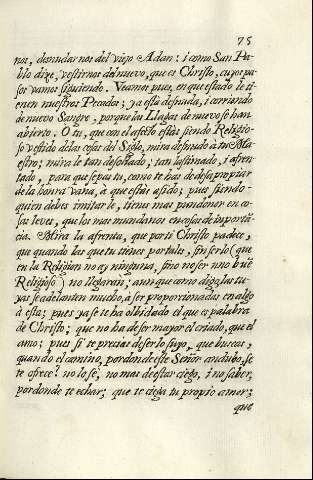 75
nos, desnudarnos del viejo Adan: i como San Pa-
blo dize, vestirnos del nuevo, que es Christo, cuyos pa-
sos vamos siguiendo. Veamos pues, en que estado le ti-
enen nuestros Pecados; ya està desnudo, i corriendo
de nuevo Sangre, porque las Llagas de nuevo se han
abierto. O tu, que con el afecto estàs siendo Religio-
so vestido de las cosas del Siglo, mira desnudo à tu Ma-
estro; mira le tan desollado; tan lastimado, i afren-
tado, para que sepas tu, como te has de desapropiar
de la honra vana, à que estàs asido; pues siendo
quien debes imitar le, tienes mas pundonor en co-
sas leves, que los mas mundanos en cosas de importã-
cia. Mira la afrenta, que por ti Christo padece,
que quando las que tu tienes por tales, sin serlo (que
en la Religion no ay ninguna, sino no ser uno buẽ
Religioso) no llegaràn; aunque como digo, las tu-
yas se adelanten mucho, à ser proporcionadas en algo
à estas; pues ya se te ha olvidado el que es palabra
de Christo; que no ha de ser mayor el criado, que el
amo; pues si te precias de ser lo suyo, que buscas,
quando el camino, por donde este Señor anduvo, se
te ofrece? no lo sè, no mas de estar ciego, i no saber,
por donde te echar; que te ciega tu propio amor;
que